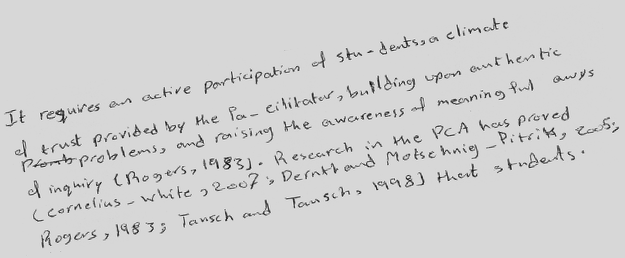 It requires an active participation of stu-dents, a climate
of trust provided by the Fa-cilitator, building upon authentic
problems, and raising the awareness of meaningful aways
of inquiry (Rogers, 1983). Research in the PCA has proved
(cornelius-white, 2007; Derntl and Motschnig-Pitrik, 2005;
Rogers, 1983; Tausch and Tausch, 1998) that students.